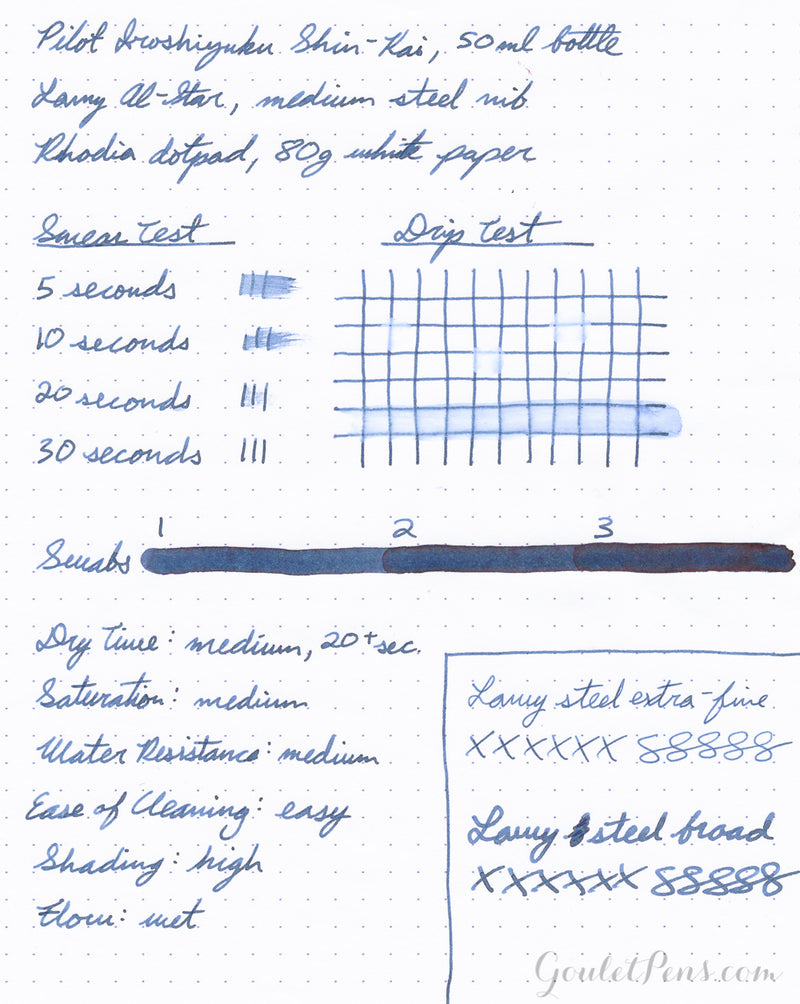 Pilot Iroshizuku Shin-Kai, 50ml bottle
Lamy Al-Star, medium steel nib
Rhodia dotpad, 80g white paper
Smear Test
Drip Test
5 seconds
10 seconds
20 seconds
30 seconds
1 2 3
Swabs
Dry Time: medium, 20+sec.
Saturation: medium
Water Resistance: medium
Ease of Cleaning: easy
Shading: high
Flow: wet
Lamy steel extra-fine
xxxxxx 88888
Lamy steel broad
xxxxxx 88888
GouletPens.com